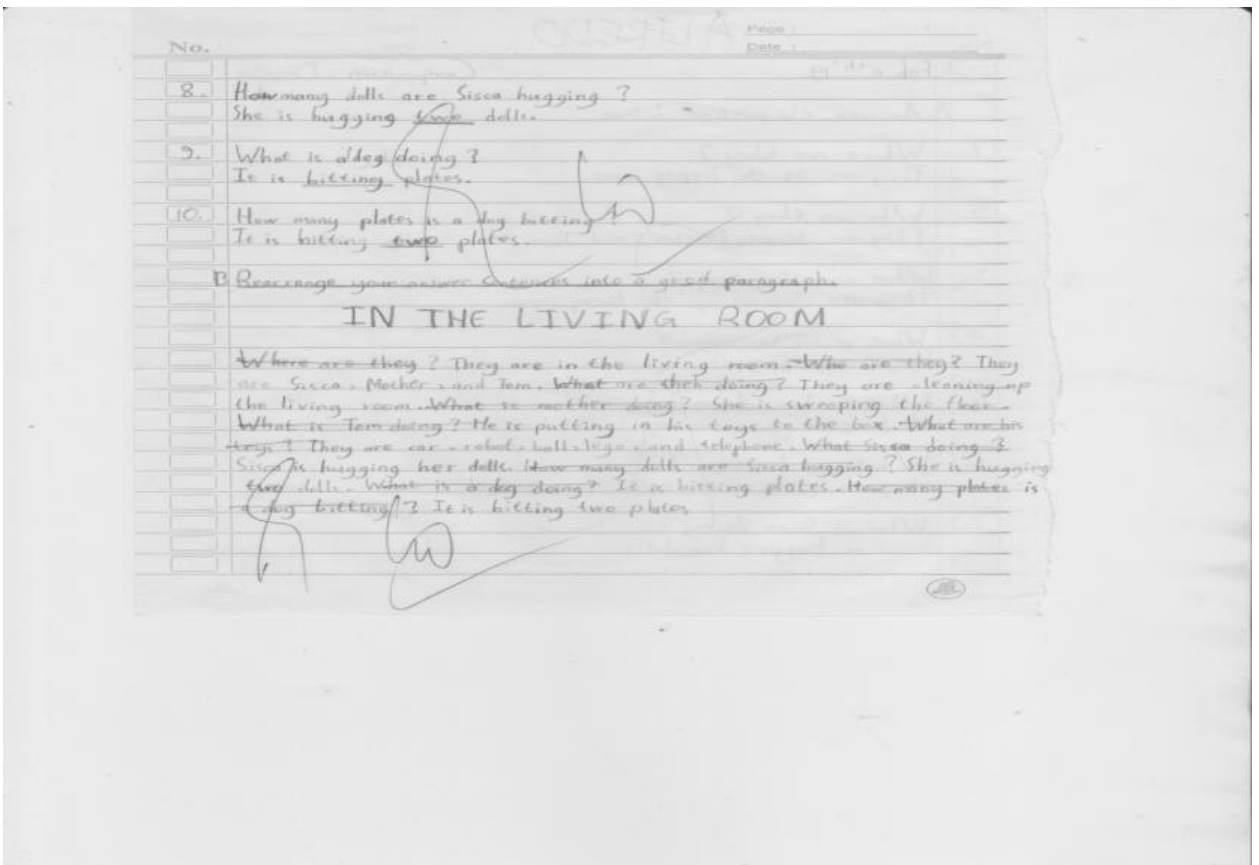 Page :
No.
Date :
8. How many dolls are Sisca hugging ?
She is hugging two dolls.
9. What is a dog doing ?
It is bitting plates.
10. How many plates is a dog bitting
It is bitting two plates.
B Rearrange your answer sentences into a good paragraph.
IN THE LIVING ROOM
Where are they ? They are in the living room. Who are they? They
are Sisca, Mother, and Tom. What are doing ? They are cleaning up
the living room. What is mother doing? She is sweeping the floor.
What is Tom doing ? He is putting in his toys to the box. What are his
toys ? They are car, robot, ball, lego, and telephone. What Sissa doing ?
Sisca is hugging her dolls. How many dolls are Sisca hugging ? She is hugging
two dolls. What is a dog doing? It is bitting plates. How many plates is
a dog bitting ? It is bitting two plates